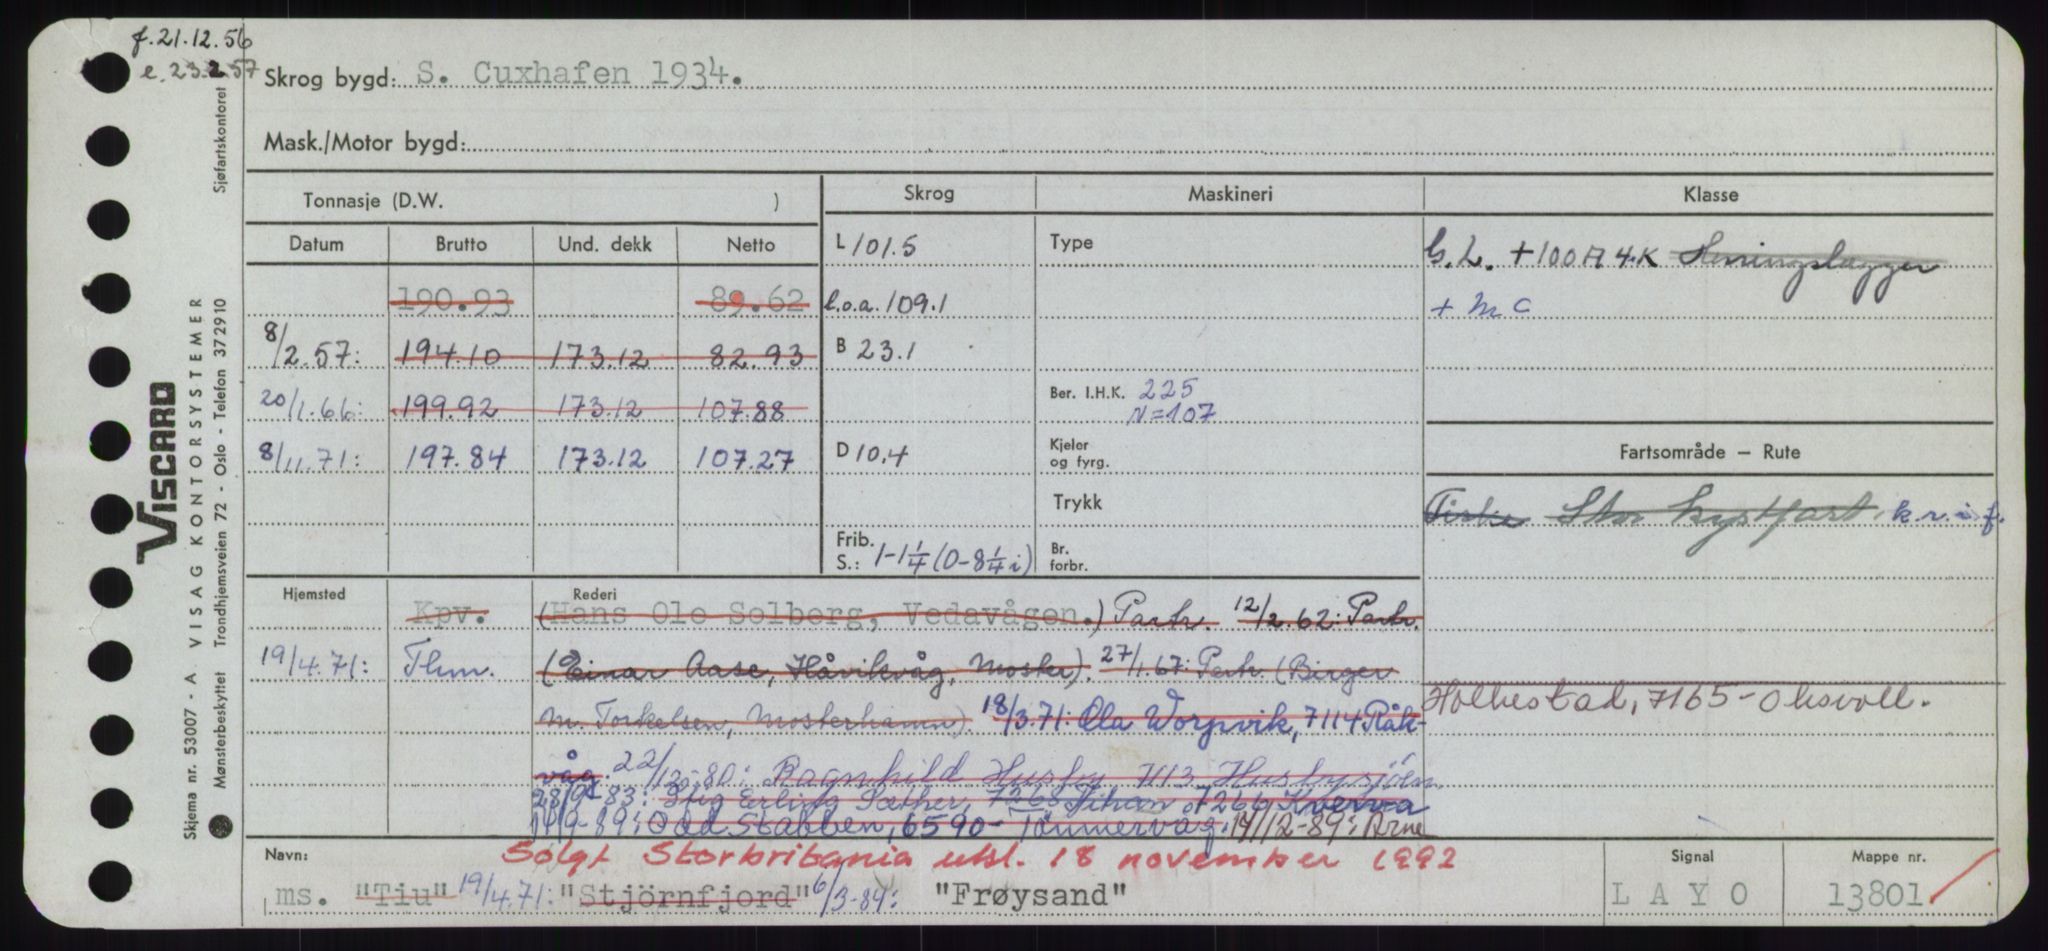 f. 21.12.56
e. 23.2.57
Skrog bygd: S. Cuxhafen 1934.
Mask./Motor bygd:
Tonnasje (D.W. ) Skrog Maskineri Klasse
Datum Brutto Und. dekk Netto L 101.5 Type G.L. + 100 A 4.K
190.93 89.62 l.o.a. 109.1 + M C
8/2.57: 194.10 173.12 82.93 B 23.1
20/1.66: 199.92 173.12 107.88 Ber. I.H.K. 225
N=107
8/11.71: 197.84 173.12 107.27 D 10.4 Kjeler og fyrg. Fartsområde – Rute
Trykk Fiske Stor kystfart. k.r.i.f.
Frib. S.: 1-1 1/4 (0-8 1/4 i) Br. forbr.
Hjemsted Rederi
Kpv. (Hans Ole Solberg, Vedavågen.) Partr. 12/2.62: Partr.
19/4.71: Thm. (Einar Aase, Håvikvåg, Moster). 27/1.67: Partr. (Birger
M. Torkelsen, Mosterhamn). 18/3.71: Ola Worpvik, 7114 Råk-
våg. 22/12-80: Ragnhild Husby 7113 Husbysjöen
28/9-83: Stig Erling Sæther, 7268 7266 Kverva
14/9-89: Odd Stabben, 6590- Tömmervåg. 14/12-89: Arne
Holkestad, 7165-Oksvoll.
Solgt Storbritania utsl. 18 november 1992
Navn: ms. "Tiu" 19/4.71: "Stjörnfjord" 6/3-84: "Frøysand"
Signal L A Y O
Mappe nr. 13801
VISCARD
VISAG KONTORSYSTEMER
Skjema nr. 53007 - A
Mønsterbeskyttet
Trondhjemsveien 72 - Oslo - Telefon 372910
Sjøfartskontoret